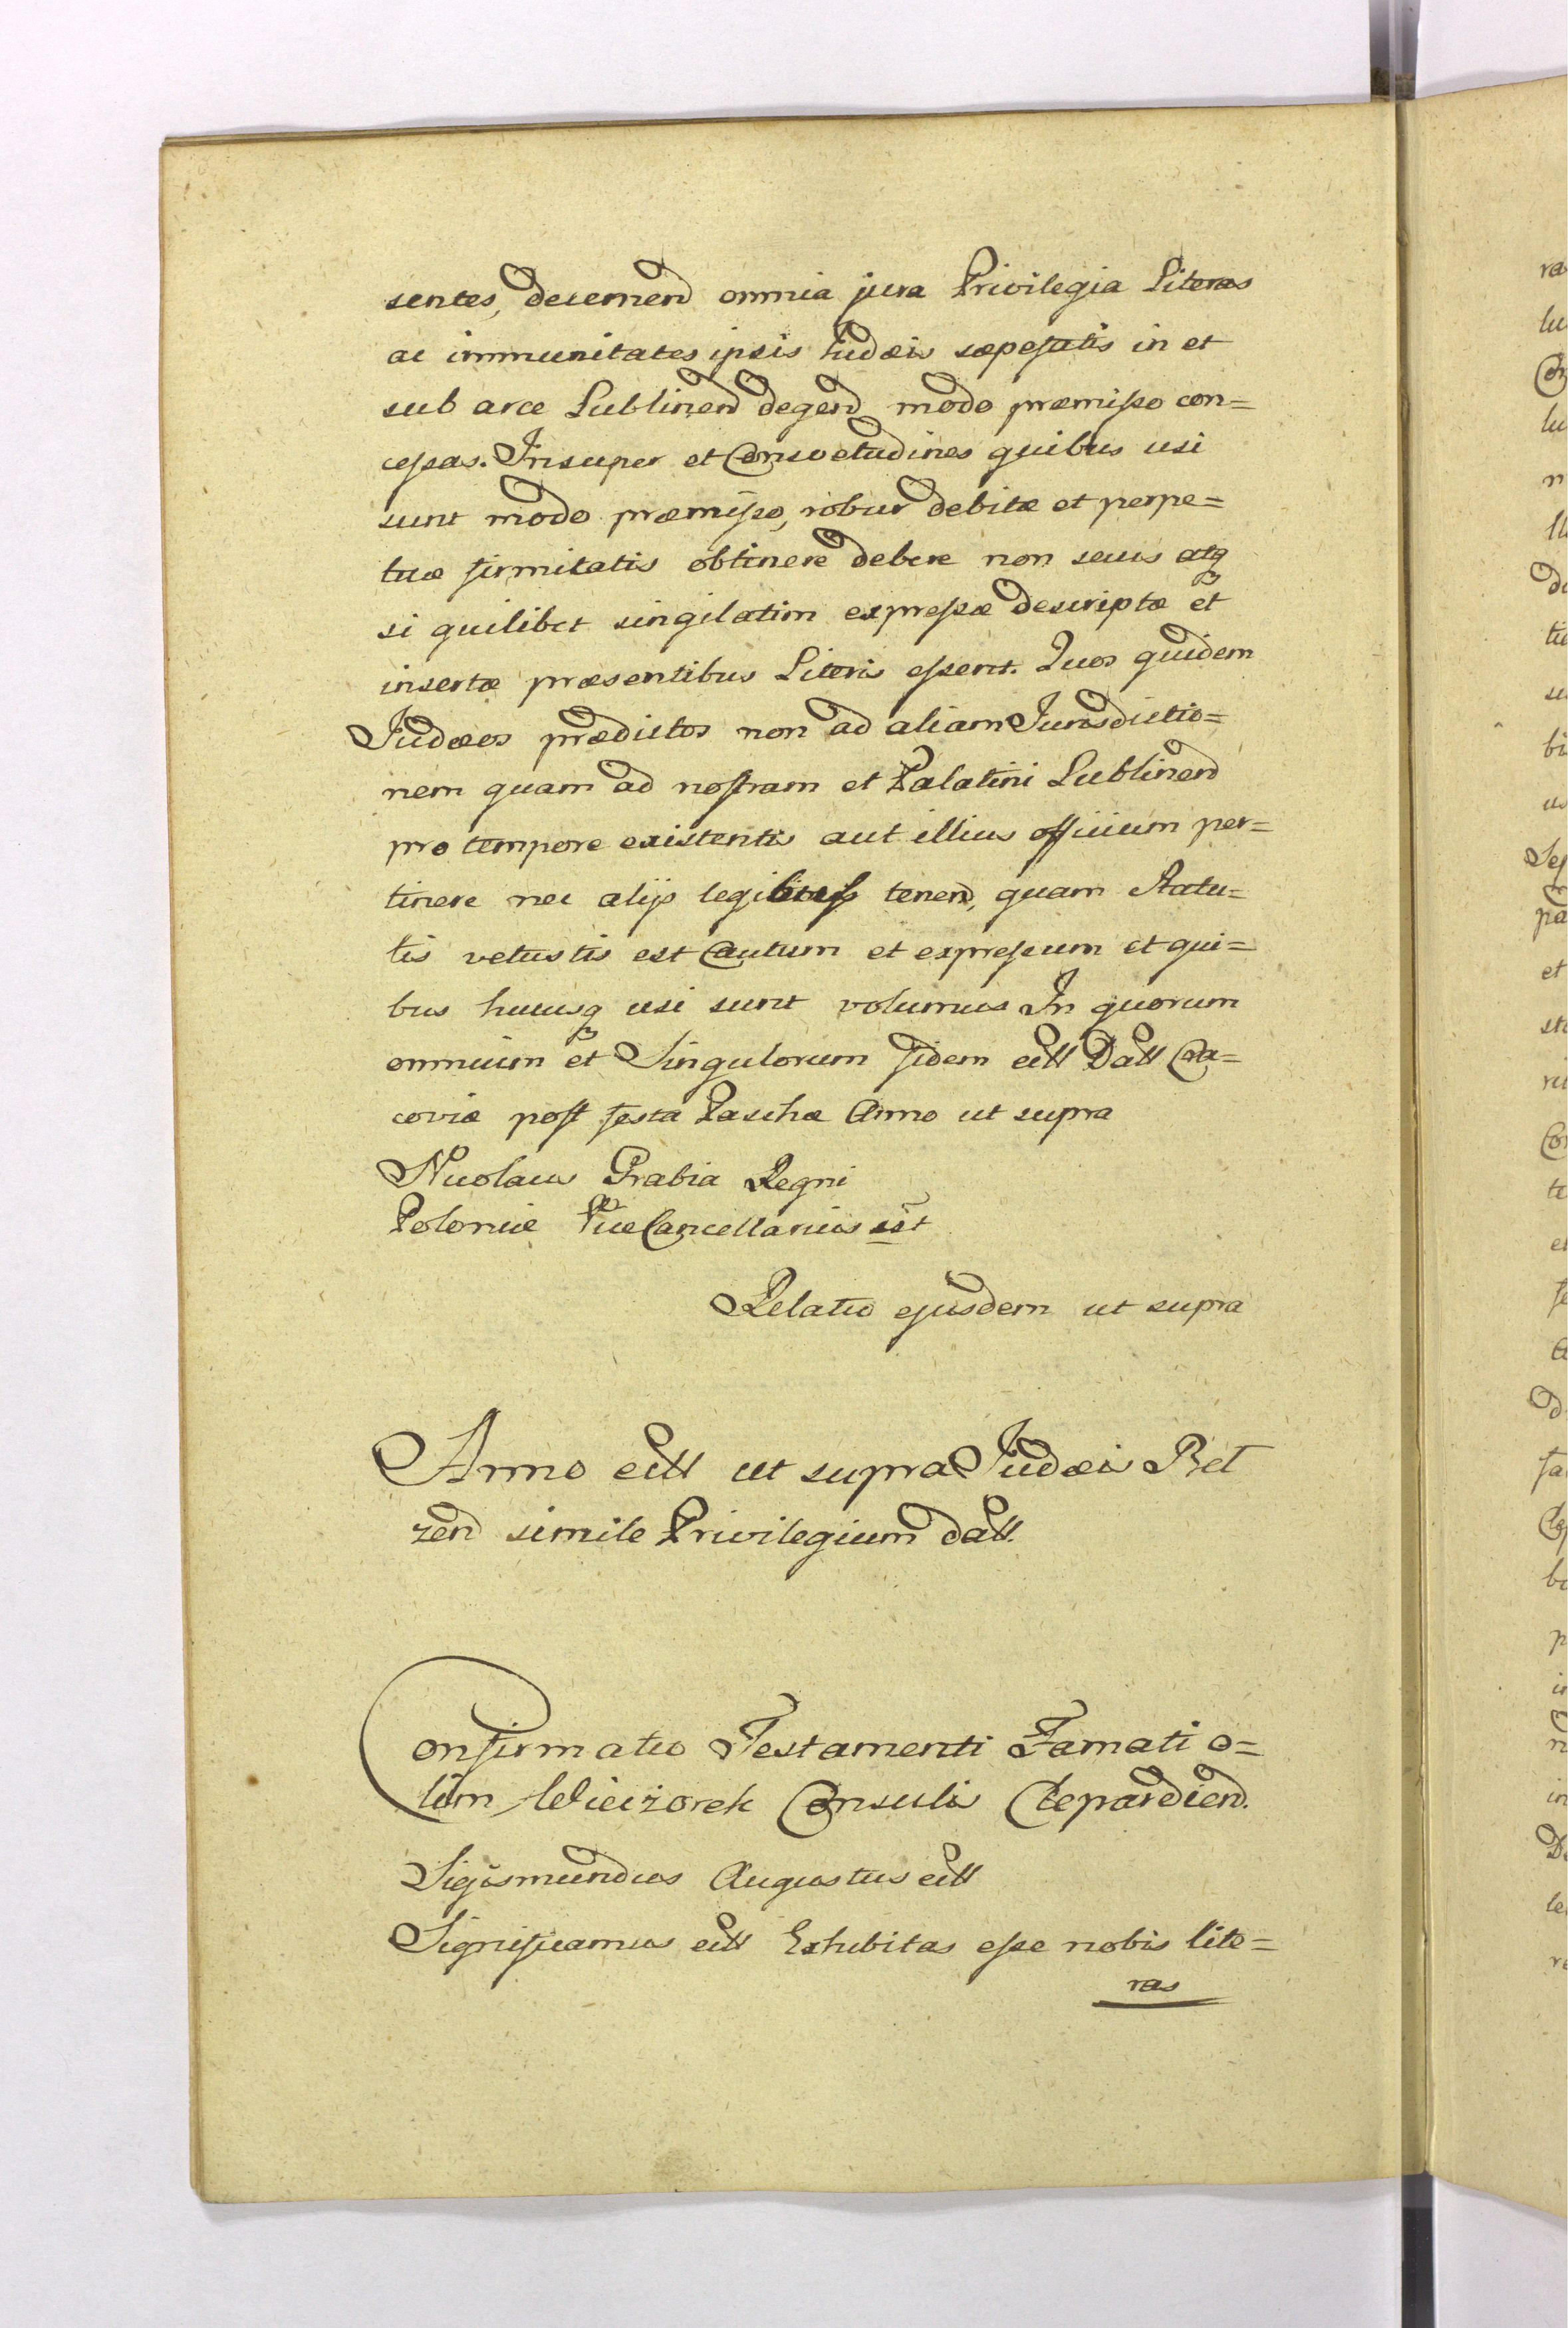 sentes, decernend omnia jura Privilegia Literas
ac immunitates ipsis Iudæis sæpefatis in et
sub arce Lublinend degend modo præmisso con=
cessas. Insuper et Consvetudines quibus usi
sunt modo præmisso, robur debitæ et perpe=
tuæ firmitatis obtinere debere non secus atq
si quilibet singilatim expressæ descriptæ et
insertæ præsentibus Literis essent. Quos quidem
Iudæos prædictos non ad aliam Iurisdictio=
nem quam ad nostram et Palatini Lublinend
pro tempore existentis aut illius officium per=
tinere nec alijs legibus tenend, quam Statu=
tis vetustis est Cautum et expressum et qui=
bus hucusq usi sunt volumus In quorum
omnium et Singulorum fidem ett Datt Cra=
coviæ post festa Paschæ Anno ut supra
Nicolaus Grabia Regni
Poloniæ ViceCancellarius sst
Relatio ejusdem ut supra
Anno ett ut supra Iudæis Bel
zend simile Privilegium datt.
Confirmatio Testamenti Famati o=
lim Wieczorek Consulis Clepardiend.
Sigismundus Augustus ett
Significamus ett Exhibitas esse nobis lite=
ras